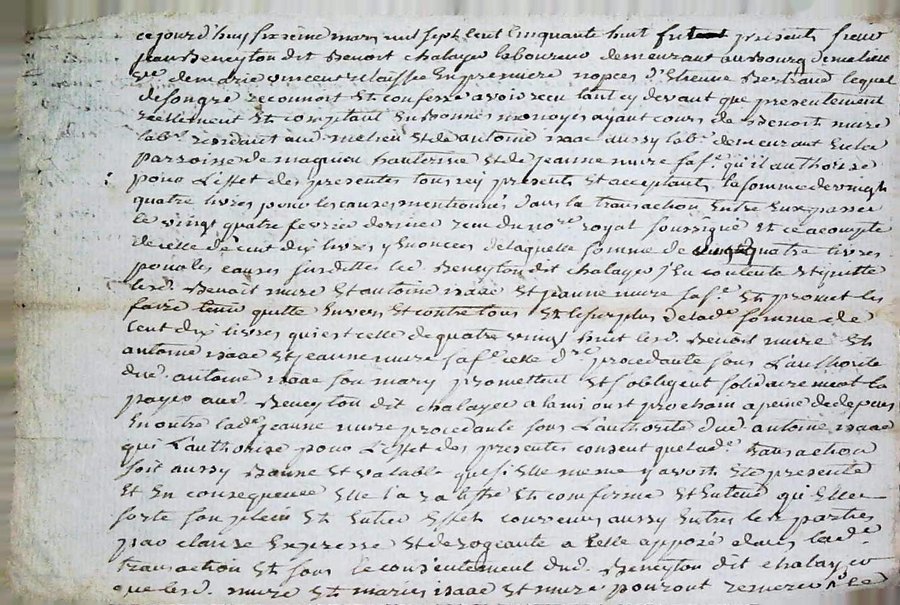 cejourd'huy sixième mars mil sept cent cinquante huit fut présents sieur
jean Beneyton dit Benoit chalayer laboureur demeurant au bourg de melieu
de marie vincent relaissée en première nopces d'Etienne Bertrand lequel
de son gré reconnoit et confesse avoir reçu tant cy devant que presentement
réellement et comptant en bonnes monoyes ayant cours de Benoit mure
lab.r résidant aud. melieu et de antoine isaac aussy lab.r demeurant en la
parroisse de hauterive et de jeanne mure sa f.e qu'il authorise
pour l'effet des présentes tous icy présents et acceptants la somme de vingt
quatre livres pour les causes mentionnées dans la transaction entre eux passée
le vingt quatre fevrier dernier rendu no.re royal soussigné et ce acompte
de celle de cent dix livres y enoncée de laquelle somme de vingt quatre livres
pour les causes susdittes led. Beneyton dit chalayer s'en contente et quitte
lesd. Benoit mure et antoine isaac et jeanne mure sa f.e et promet les
faire tenir quitte envers et contre tous et le surplus de lad.e somme de
cent dix livres qui est celle de quatre vingt huit lesd. Benoit mure et
antoine isaac et jeanne mure sa f.e celle d.re procedante sous l'authorité
dud. antoine isaac son mary promettent et s'obligent solidairement la
payer aud. Beneyton dit chalayer a la mi oust prochain a peine de depens
En outre lad.e jeanne mure procedante sous l'authorité dud. antoine isaac
qui l'authorise pour l'effet des présentes consent que lad.e transaction
soit aussy bonne et valable que si elle meme y avoit eté presente
et en consequence elle l'a ratiffie et confirme et entend qu'elle
sorte son plein et entier effet convenu aussy entre les parties
par clause expresse et derogeante a celle apposé dans lad.e
transaction et sous le consentement dud. Beneyton dit chalayer
que lesd. mure et maries isaac et mure pouront